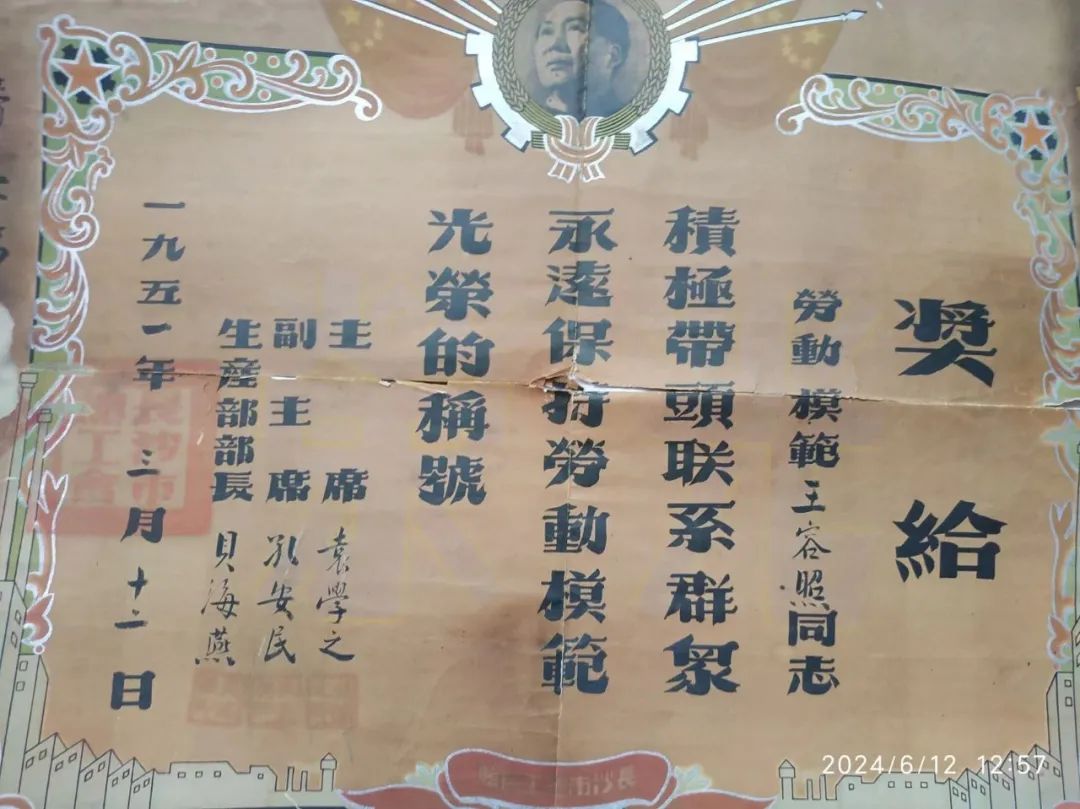 獎給
勞動模範王容照同志
積極帶頭联系群眾
永遠保持勞動模範
光榮的稱號
主席 袁學之
副主席 孔安民
生產部部長 貝海燕
一九五一年三月十二日
長沙市
2024/6/12 12:57